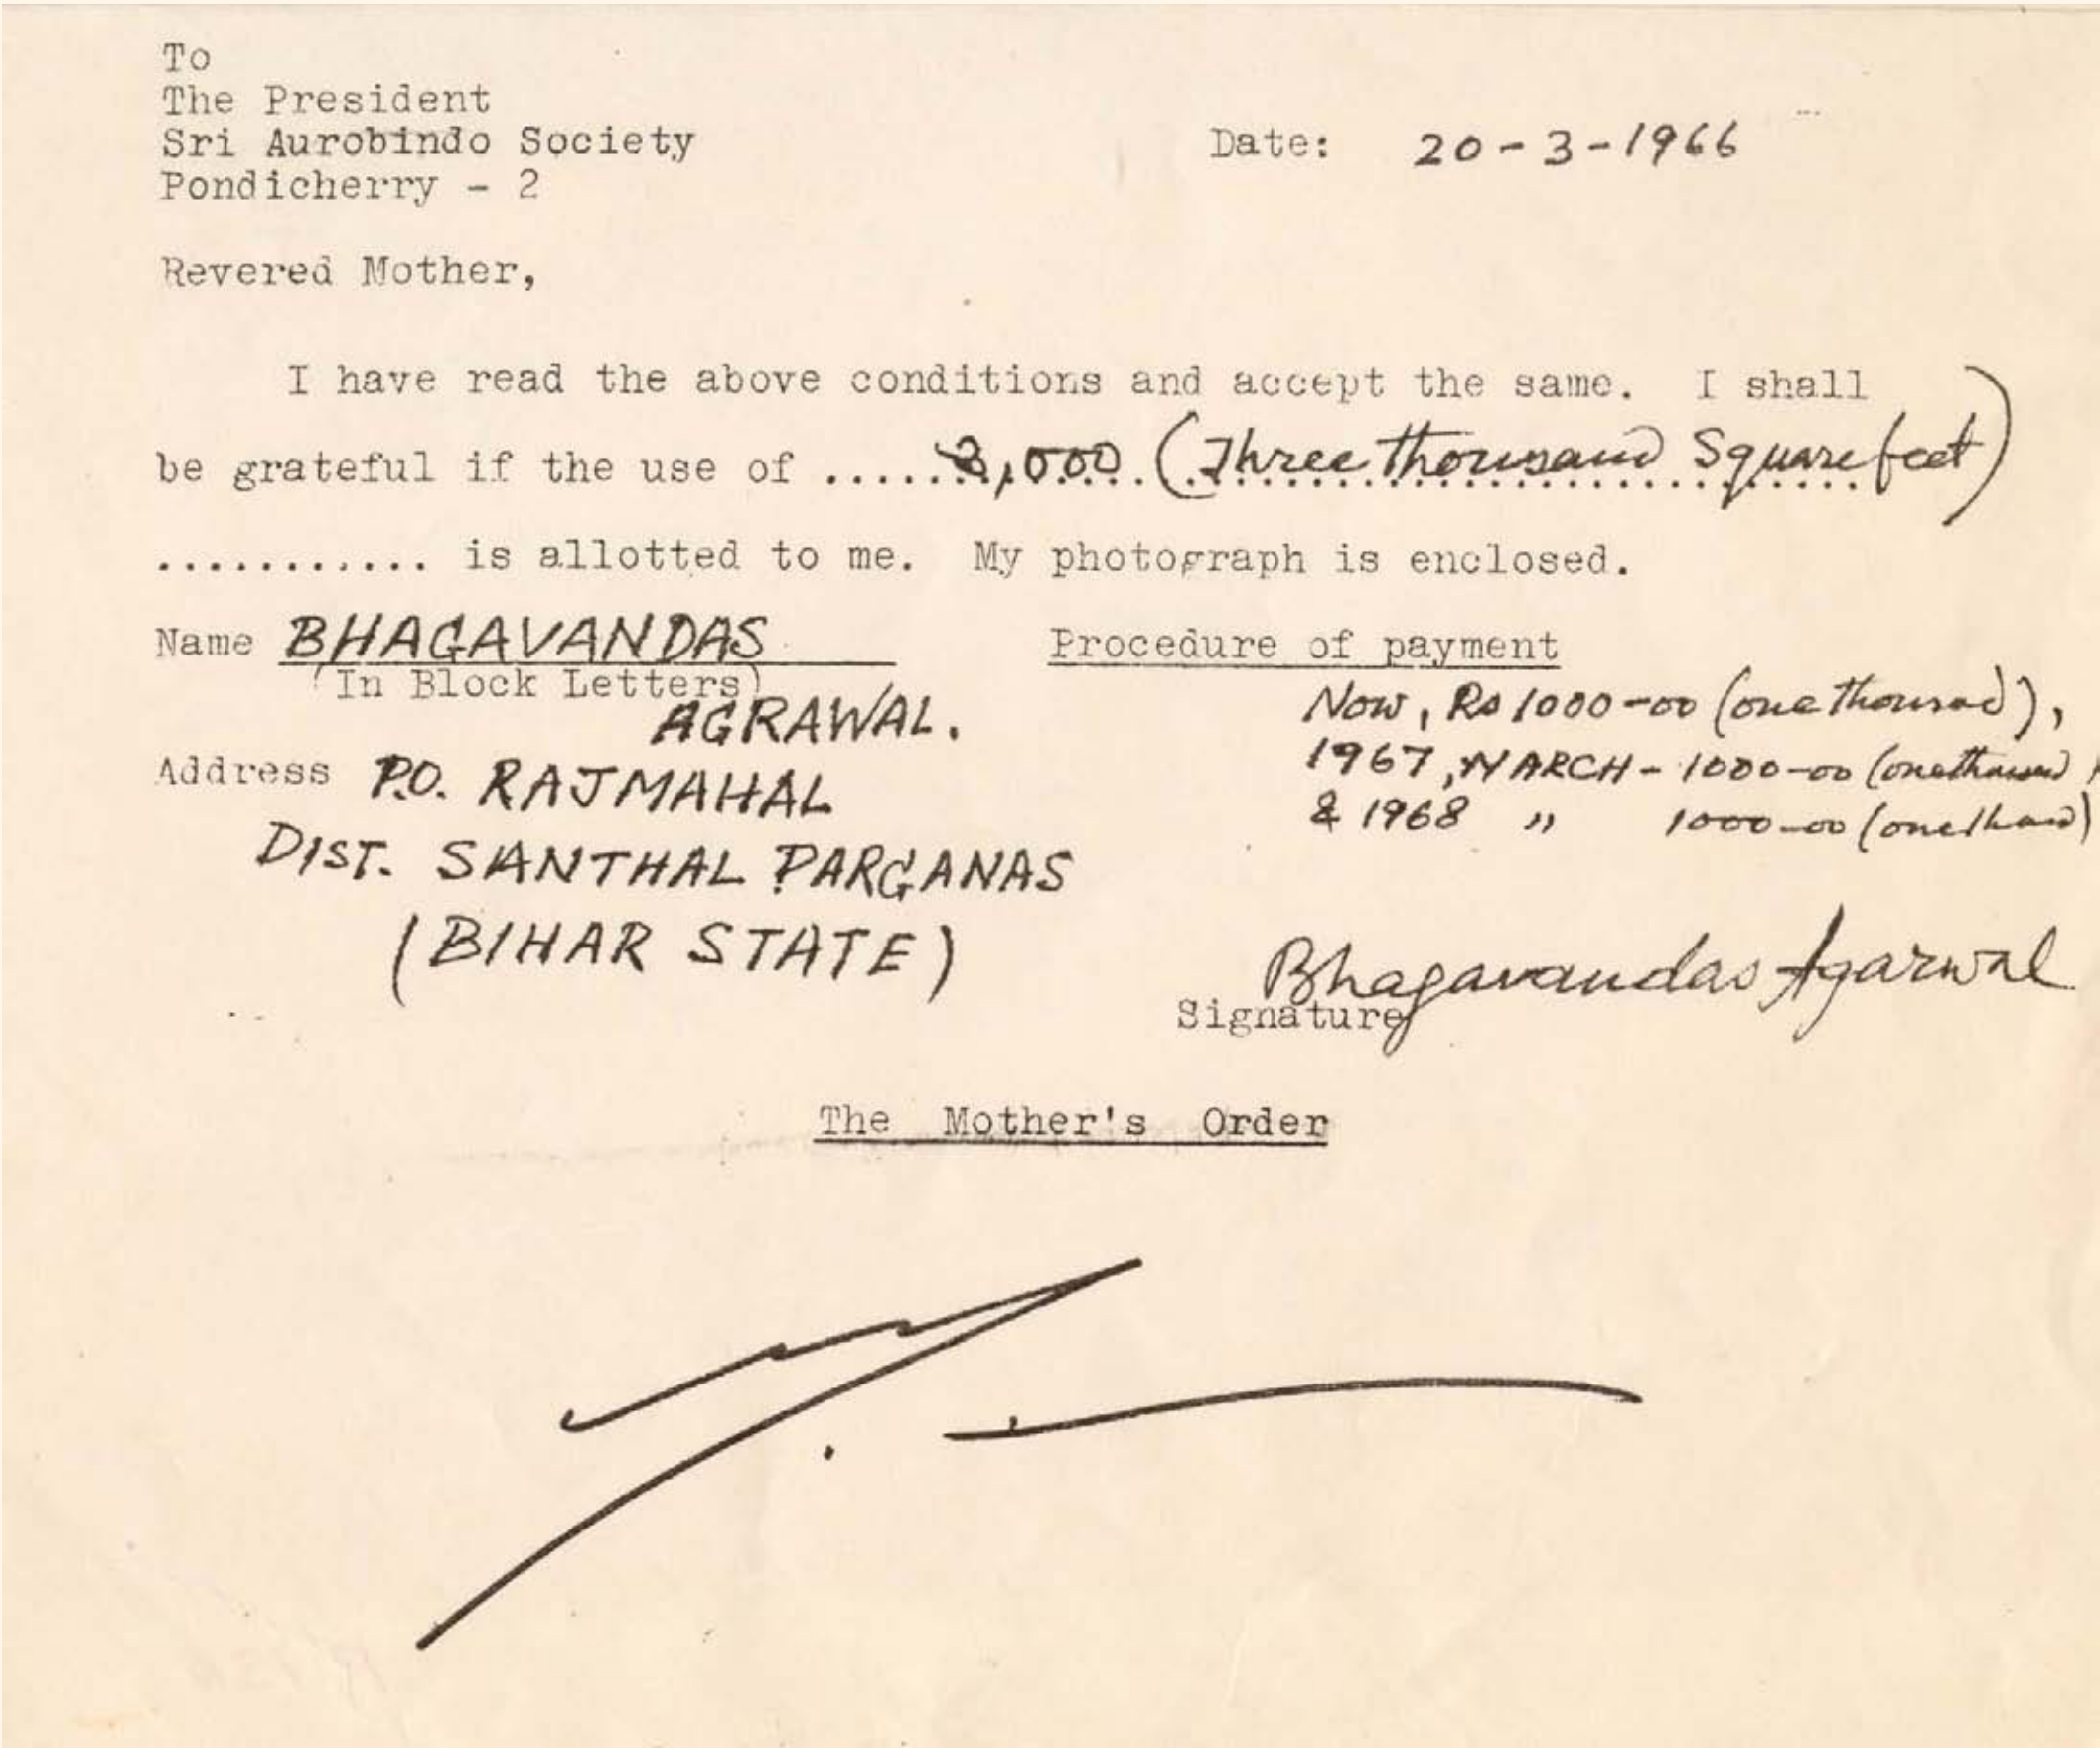 To
The President
Sri Aurobindo Society
Pondicherry - 2
Date: 20-3-1966
Revered Mother,
I have read the above conditions and accept the same. I shall
be grateful if the use of ......3,000 (Three thousand Square feet)
........... is allotted to me. My photograph is enclosed.
Name BHAGAVANDAS
(In Block Letters)
AGRAWAL.
Address P.O. RAJMAHAL
DIST. SANTHAL PARGANAS
(BIHAR STATE)
Procedure of payment
Now, Rs 1000-00 (one thousand),
1967, MARCH - 1000-00 (one thousand)
& 1968 " 1000-00 (one thousand)
Bhagavandas Agarwal
Signature
The Mother's Order